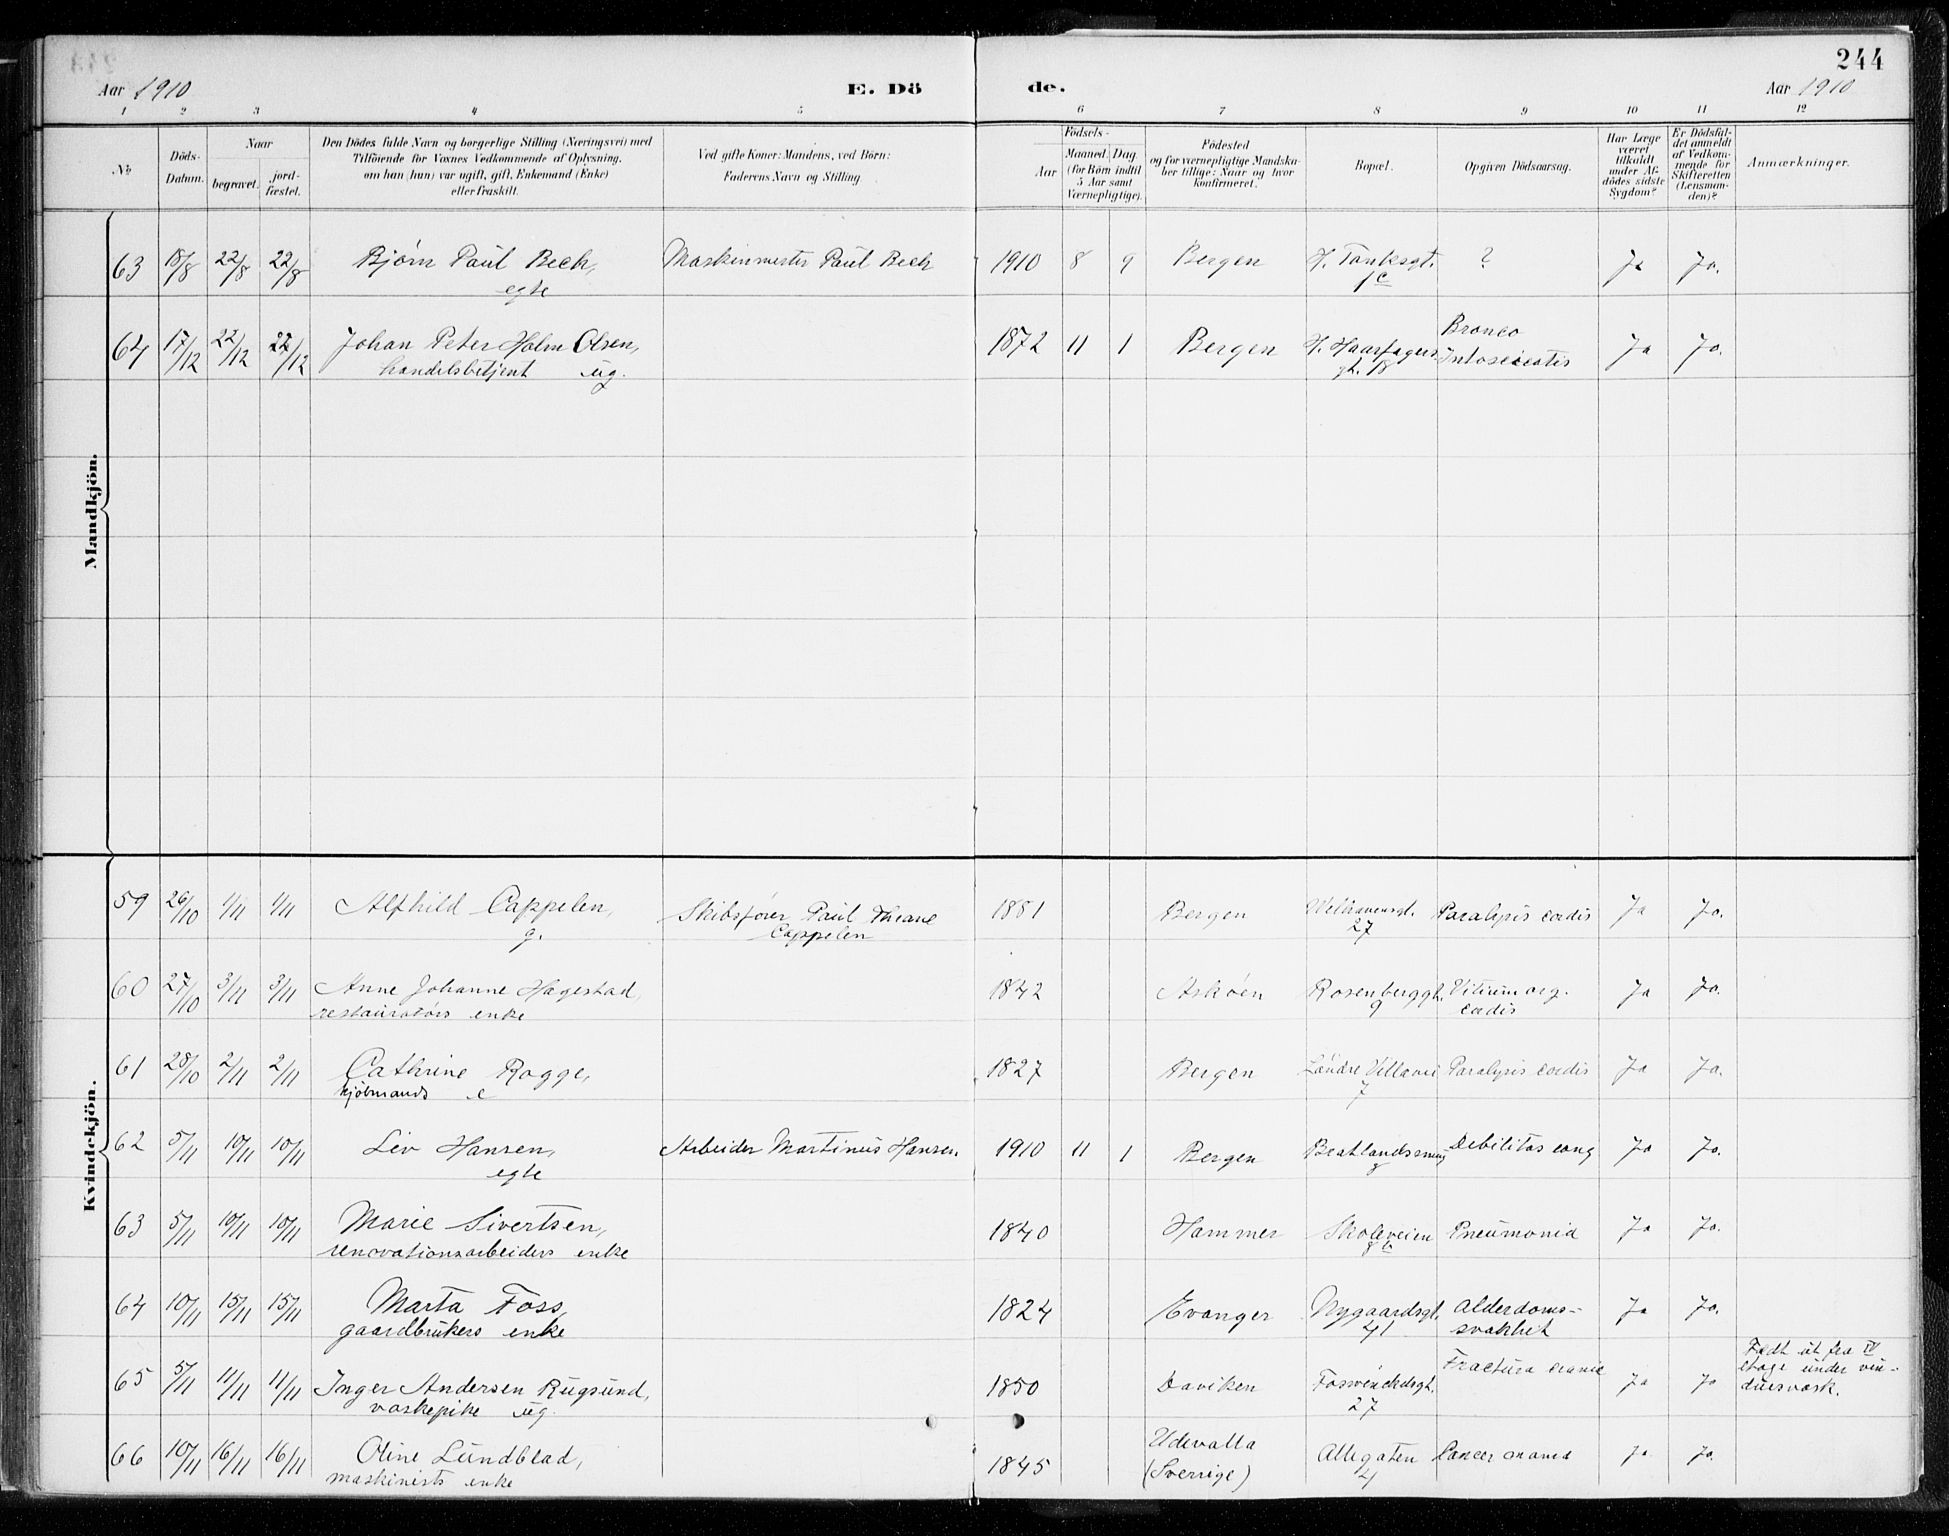 244
Aar 1910 E. Dö de. Aar 1910
1 2 3 4 5 6 7 8 9 10 11 12
No. Döds-Datum. Naar begravet. jord-fæstet. Den Dödes fulde Navn og borgerlige Stilling (Næringsvei) med Tilföiende for Voxnes Vedkommende af Oplysning, om han (hun) var ugift, gift, Enkemand (Enke) eller fraskilt. Ved gifte Koner: Mandens, ved Börn: Faderens Navn og Stilling. Födsels- Aar Maaned. Dag. (for Börn indtil 5 Aar samt Værnepligtige). Födested og for værnepligtige Mandskaber tillige: Naar og hvor konfirmeret. Bopæl. Opgiven Dödsaarsag. Har Læge været tilkaldt under Afdödes sidste Sygdom? Er Dödsfaldet anmeldt af Vedkommende for Skifteretten (Lensmanden)? Anmærkninger.
Mandkjön.
63 18/8 22/8 22/8 Bjørn Paul Bech, Maskinmester Paul Bech 1910 8 9 Bergen H. Tanksgt. ? Ja Ja.
egte 1c
64 17/12 22/12 22/12 Johan Peter Holm Olsen, 1872 11 1 Bergen H. Haarfagers Bronco Ja Ja.
handelsbetjent ug. gt. 18 Intoxicatis
Kvindekjön.
59 26/10 1/11 1/11 Alfhild Cappelen, Skibsfører Paul Theane 1881 Bergen Welhavensgt. Paralysis cordis Ja Ja.
g. Cappelen 27
60 27/10 3/11 3/11 Anne Johanne Hagestad, 1842 Askøen Rosenberggt. Vitium org. Ja Ja.
restauratørs enke 9 cordis
61 28/10 2/11 2/11 Cathrine Rogge, 1827 Bergen Søndre Villavei Paralysis cordis Ja Ja.
kjøbmands e 7
62 5/11 10/11 10/11 Liv Hansen, Arbeider Martinus Hansen 1910 11 1 Bergen Bratlandssmug Debilitas cong Ja Ja.
egte 8
63 5/11 10/11 10/11 Marie Sivertsen, 1840 Hammer Skoleveien Pneumonia Ja Ja.
renovationsarbeiders enke 8b
64 10/11 15/11 15/11 Marta Foss, 1824 Evanger Nygaardsgt. Alderdoms- Ja Ja.
gaardbrukers enke 41 svakhet
65 5/11 11/11 11/11 Inger Andersen Rugsund, 1850 Daviken Foswinckelsgt. Fractura cranie Ja Ja Fadt ut fra IV
vaskepike ug. 27 etage under vin-
duesvask.
66 10/11 16/11 16/11 Oline Lundblad, 1845 Udevalla Allegaten Cancer mama Ja Ja.
maskinists enke (Sverrige) 4